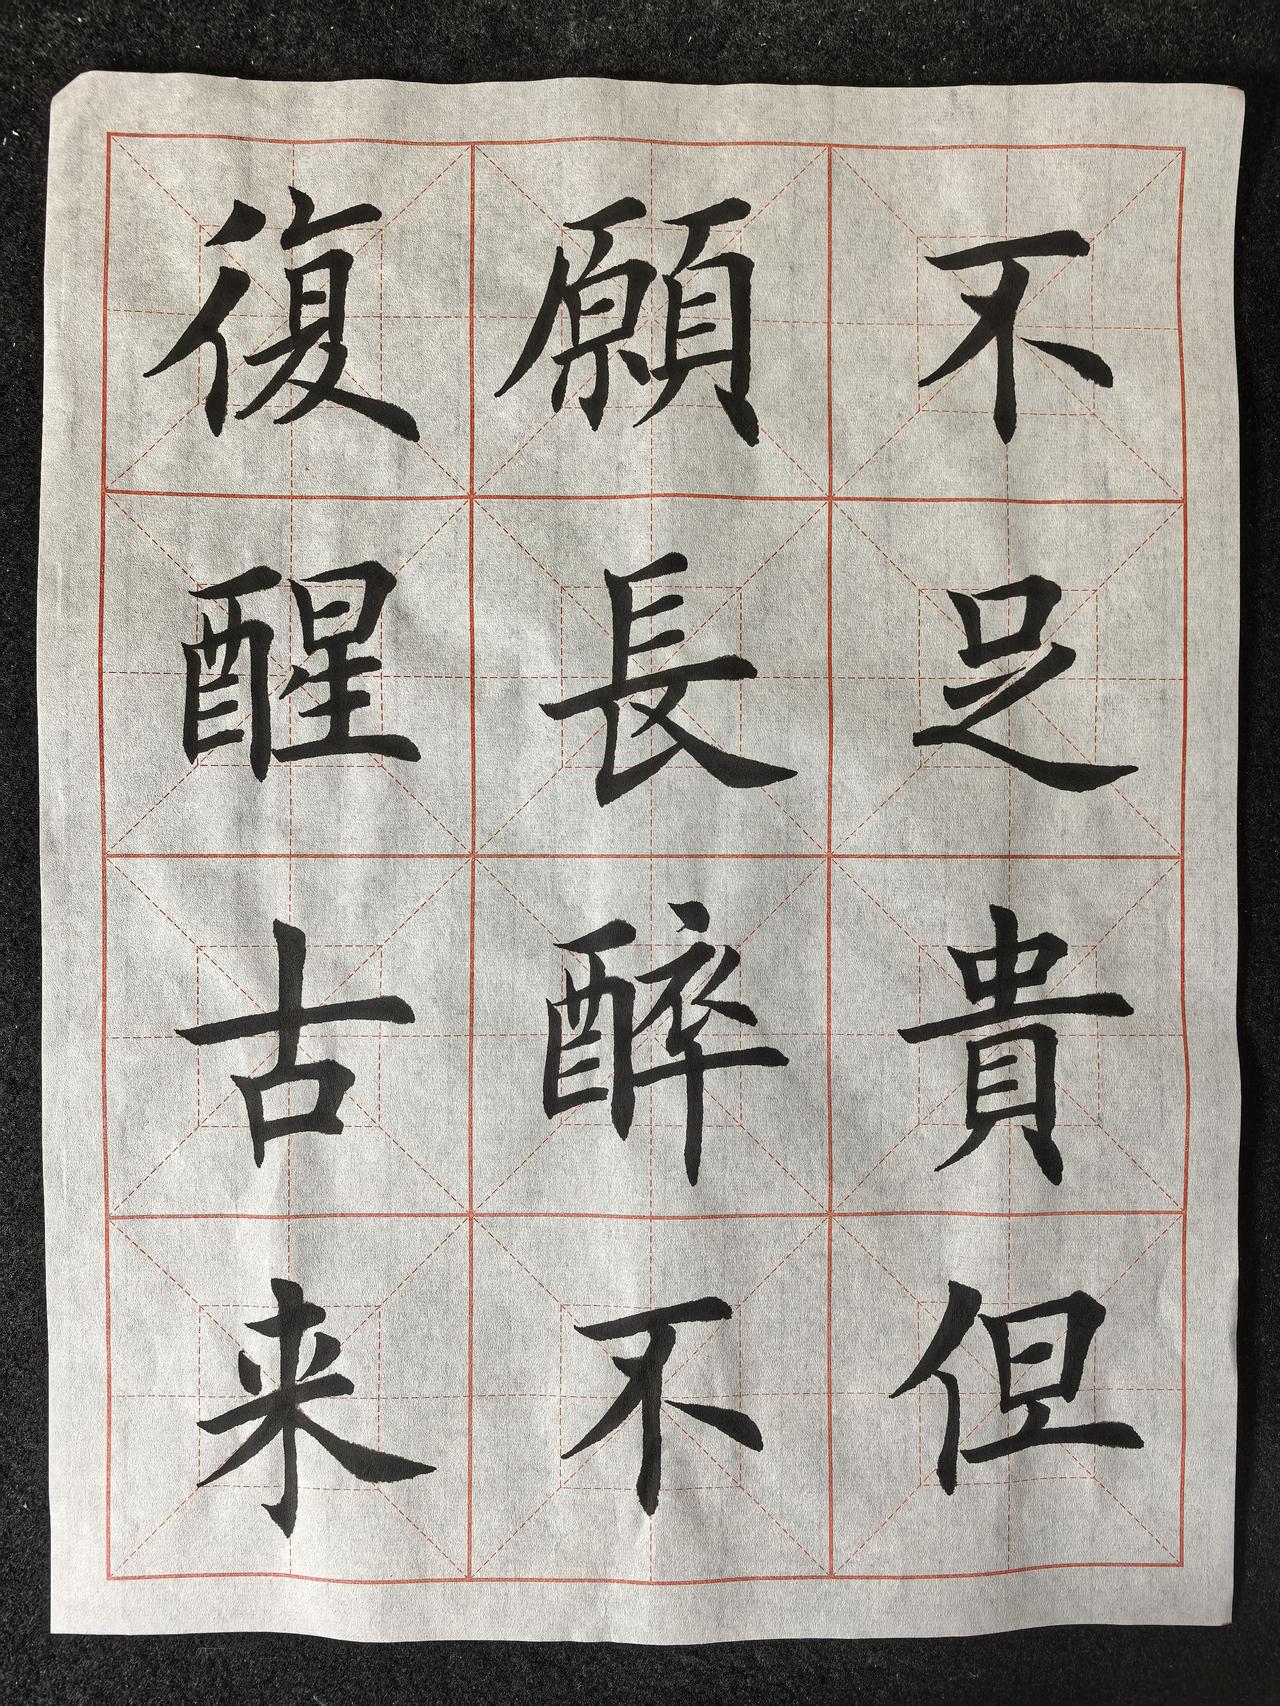 不足貴但
願長醉不
復醒古来